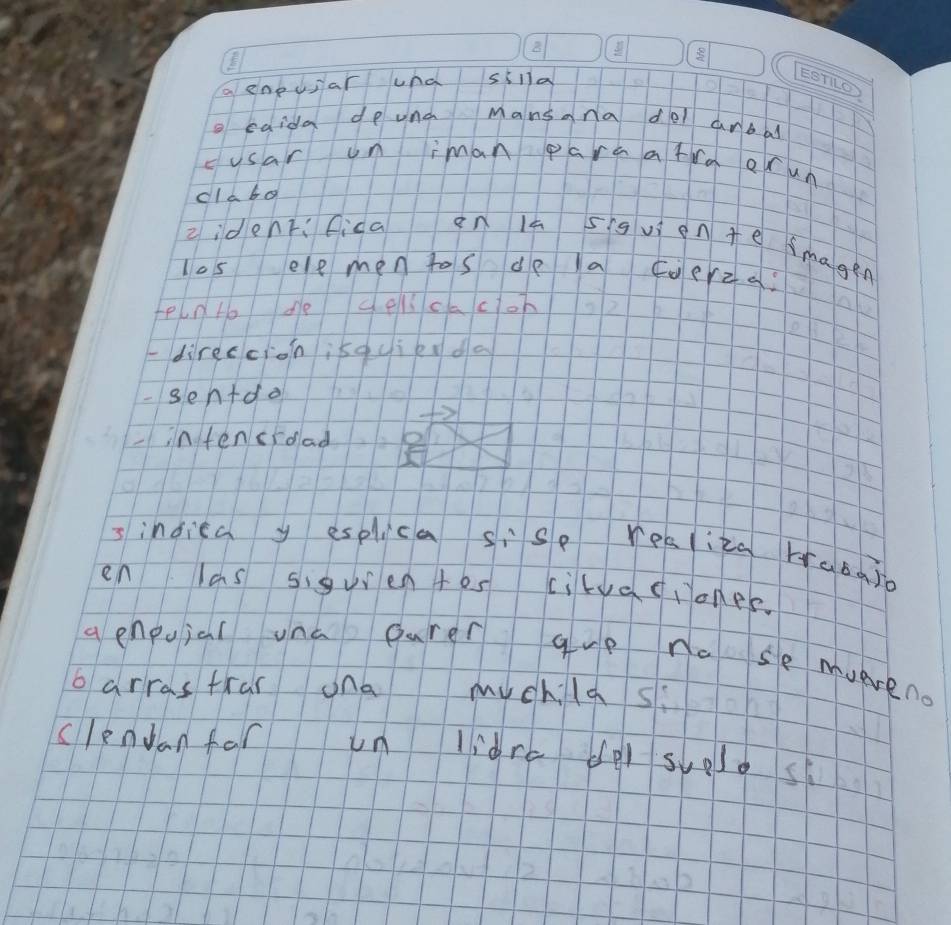 Tema Día Mes Año
ESTILO
a enpujar una silla
b caida de una mansana del arbal
c usar un iman para atra er un
clabo
2 identifica en la siguiente imagen
los elementos de la fuerza:
punto de aplicacion
- direccion isquierda
- sentdo
- intencidad
3 indica y esplica si se realiza trabajo
en las siguientes cituaciones.
a enpujar una parer que no se mueve no
b arrastrar una muchila si
c lenvantar un lidro del suelo si